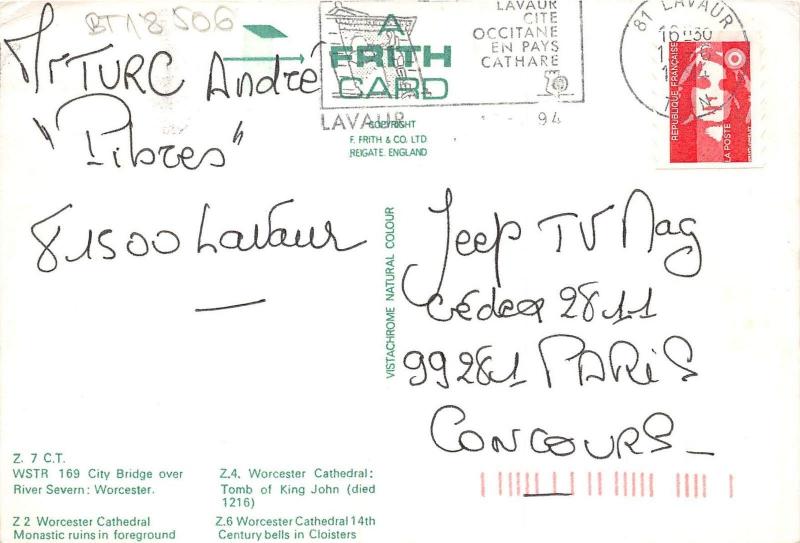 BT18506
Mr TURC André
"Pibres"
81500 Lavaur
A
FRITH
CARD
COPYRIGHT
F. FRITH & CO. LTD
REIGATE, ENGLAND
LAVAUR
CITE
OCCITANE
EN PAYS
CATHARE
LAVAUR
94
81 LAVAUR
16H30
RÉPUBLIQUE FRANÇAISE
LA POSTE
VISTACHROME NATURAL COLOUR
Jeep TV Mag
Cédex 2811
99281 PARIS
CONCOURS_
Z. 7 C.T.
WSTR 169 City Bridge over
River Severn: Worcester.
Z 2 Worcester Cathedral
Monastic ruins in foreground
Z.4. Worcester Cathedral:
Tomb of King John (died
1216)
Z.6 Worcester Cathedral 14th
Century bells in Cloisters